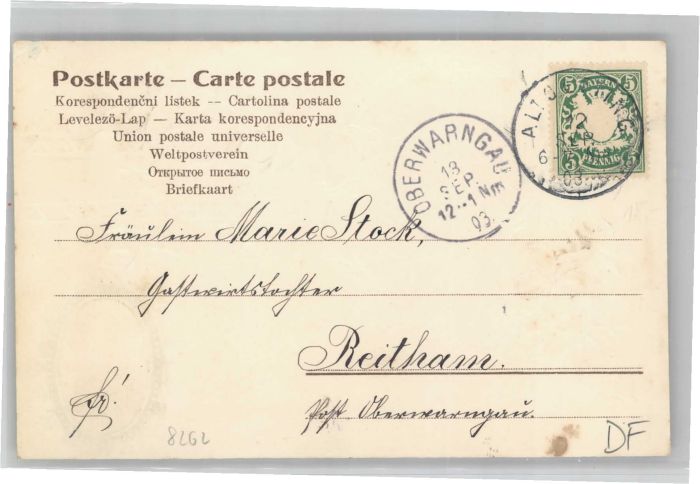 Postkarte – Carte postale
Korespondenčni listek -- Cartolina postale
Levelezö-Lap — Karta korespondencyjna
Union postale universelle
Weltpostverein
Открытое письмо
Briefkaart
BAYERN
5 5
5 5
PFENNIG
6-
SEP.
03
OBERWARNGAU
13
SEP.
12-1 Nm
03.
Fräulein Marie Stock,
Gastwirtstochter
Reitham.
fr!
Post Oberwarngau.
8262
DF